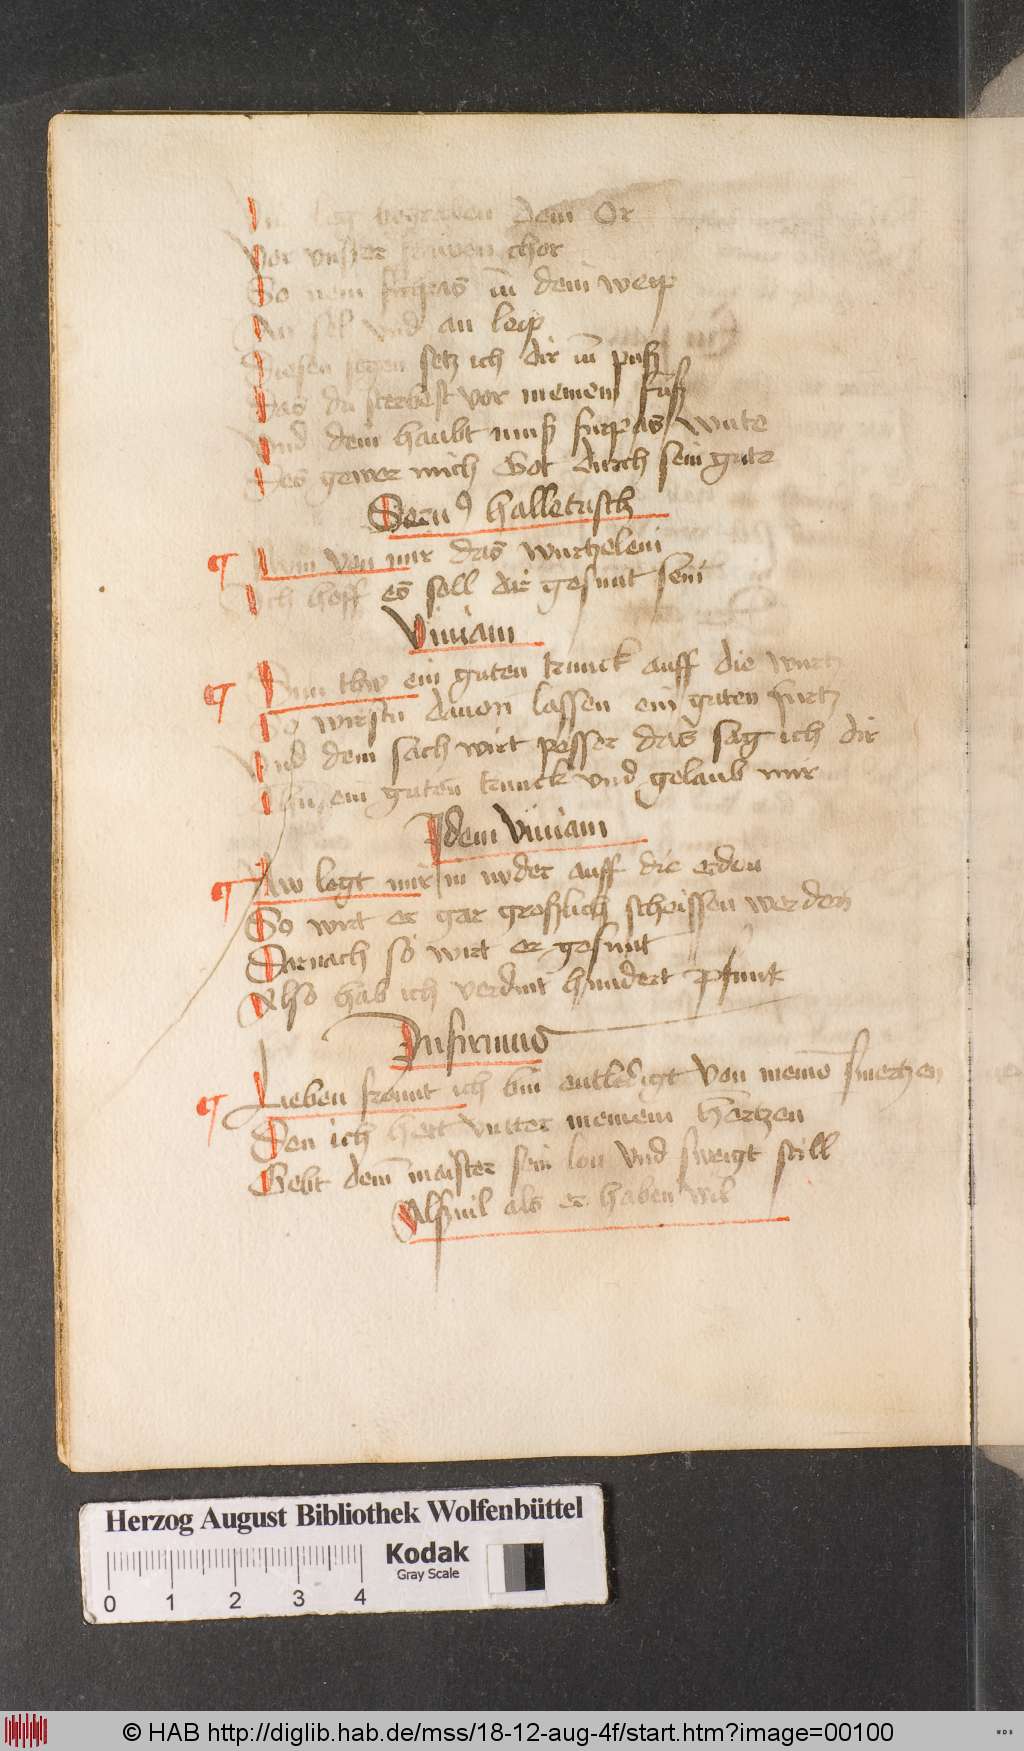 In
leg begraben dem Or
Vor vnszer frawen chor
So nem furpas im dein weip
An sel vnd an leip
Diesen segen setz ich dir in pusz
Das du sterbest vor meinem fusz
Vnd dein haubt musz furpas wute
Des gewer mich Got durch sein gute
Seru9 halletusch
Nym von mir das wurtzelein
Ich hoff es soll dir gesunt sein
Viuiam
Nun thw ein guten trunck auff die wurtz
So wirstu dauon lassen ein guten furtz
Vnd dem sach wirt pesser das sag ich dir
Thu ein guten trunck vnd gelaub mir
Idem Viuiam
Nw legt mir in nyder auff die erden
So wirt er gar groszlich scheissen werden
Darnach so wirt er gesunt
Also hab ich verdint hundert pfunt
Infirmus
Lieben freunt ich bin entledigt von meinē smertzen
Den ich hett vntter meinem hertzen
Gebt dem maister sein lon vnd sweigt still
Alszuil als er haben wil
Herzog August Bibliothek Wolfenbüttel
Kodak
Gray Scale
0 1 2 3 4
© HAB http://diglib.hab.de/mss/18-12-aug-4f/start.htm?image=00100
WDB